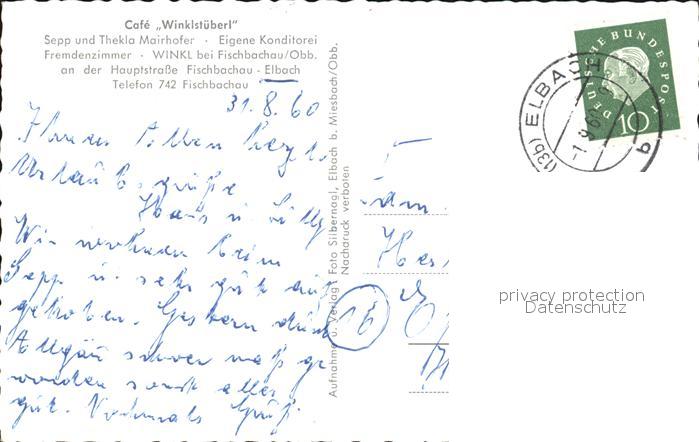 Café „Winklstüberl"
Sepp und Thekla Mairhofer · Eigene Konditorei
Fremdenzimmer · WINKL bei Fischbachau/Obb.
an der Hauptstraße Fischbachau - Elbach
Telefon 742 Fischbachau
31.8.60
Ihnen Allen herzl.
Urlaubsgrüße
Wir wohnen beim
Sepp u. sehr gut auf
gehoben. Gestern
Allgäu schwer naß ge
worden sonst alles
gut. Nochmals Gruß.
Aufnahme u. Verlag: Foto Silbernagl, Elbach b. Miesbach/Obb.
Nachdruck verboten
DEUTSCHE BUNDESPOST
10
(13b) ELBACH
-1.9.60
b
16
privacy protection
Datenschutz